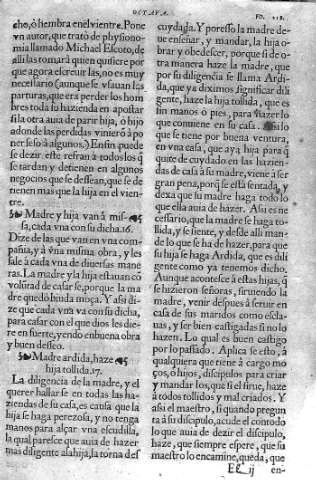 OCTAVA.
FO. 218.
cho, ò hembra en el vientre. Pone
vn autor, que trató de physiono-
mia llamado Michael Escoto, de
alli las tomará quien quisiere por
que agora escreuir las, no es muy
necessario (aunque se vsauan las
parturas, que era perder los hom
bres toda lo hazienda en apostar
si la otra auia de parir hija, ò hijo
adonde las perdidas vinieró à po
ner seso à algunos.) En fin puede
se dezir este refran à todos los q̃
se tardan y detienen en algunos
negocios que se dessean, que se de
tienen mas que la hija en el vien-
tre.
Madre y hija van à mis-
sa, cada vna con su dicha. 16.
Dize de las que van en vna com-
pañia, y à vna misma obra, y les
sale à cada vna de diuersas mane
ras. La madre y la hija estauan có
volũtad de casar se, porque la ma
dre quedó biuda moça. Y assi di-
ze que cada vna va con su dicha,
para casar con el que dios les die-
re en suerte, yendo en buena obra
y buen desseo.
Madre ardida, haze
hija tollida. 17.
La diligencia de la madre, y el
querer hallar se en todas las ha-
ziendas de su casa, es causa que la
hija se haga perezosa, y no tenga
manos para alçar vna escudilla,
la qual parece que auia de hazer
mas diligente à la hija, la torna des
cuydada. Y por esso la madre de-
ue enseñar, y mandar, la hija o-
brar y obedescer, porque si de o-
tra manera haze la madre, que
por su diligencia se llama Ardi-
da, que ya diximos significar dili
gente, haze la hija tollida, que es
sin manos ò pies, para hazer lo
que conuiene en su casa.
que se tiene por buena ventura,
en vna casa, que aya hija para q̃
quite de cuydado en las hazien-
das de casa à su madre, viene à ser
gran pena, porq̃ se està sentada, y
dexa que su madre haga todo lo
que ella auia de hazer. Assi es ne
cessario, que la madre se haga to-
llida, y se siente, y desde alli man-
de lo que se ha de hazer, para que
su hija se haga Ardida, que es dili
gente como ya tenemos dicho.
Aunque acontesce à estas hijas, q̃
se hizieron señoras, siruiendo la
madre, venir despues à seruir en
casa de sus maridos como escla-
uas, y ser bien castigadas si no lo
hazen. Lo qual es buen castigo
por lo passado. Aplica se esto, à
qualquiera que tiene à cargo mo
ços, ò hijos, discipulos para criar
y mandar los, que si el sirue, haze
à todos tollidos y mal criados. Y
assi el maestro, si quando pregun
ta à su discipulo, acude el contodo
lo que auia de dezir el discipulo,
haze, que siempre espere, que su
maestro lo encamine, queda, que
Ee ij
en-